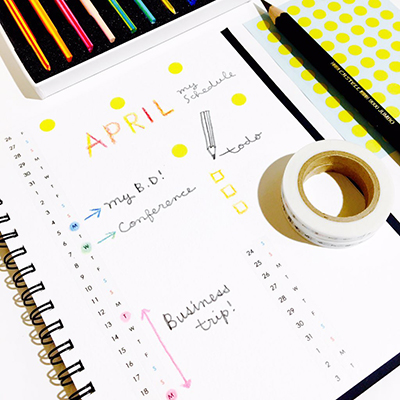 APRIL
my
Schedule
todo
my B.D!
Conference
Business
trip!
CASTELL 9000 JUMBO
28
29
30
31
1
2
3
4 M
5
6 W
7
8
9
10
11 M
12 T
13 W
14 T
15 F
16 S
17 S
18 M
24
25
26
27
28
29
30
1
2
3